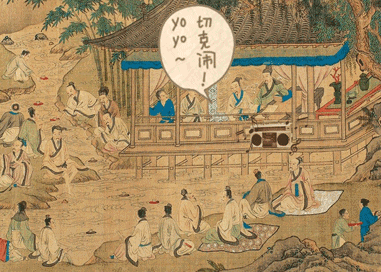 yo
yo
~
切克闹!